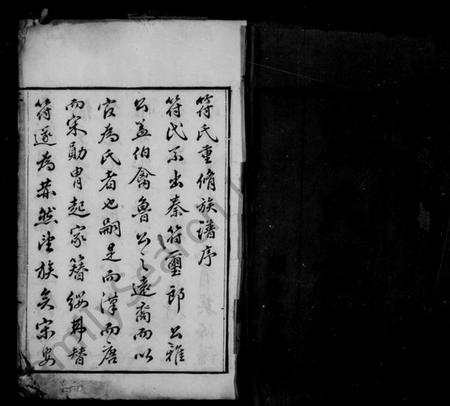 符氏重脩族譜序
符氏系出秦符璽郎公雅
公蓋伯禽魯公之遠裔而以
官為氏者也嗣是而漢而唐
而宋勛胄起家簪纓弗替
符遂為蔚然望族矣宋安
FamilySearch